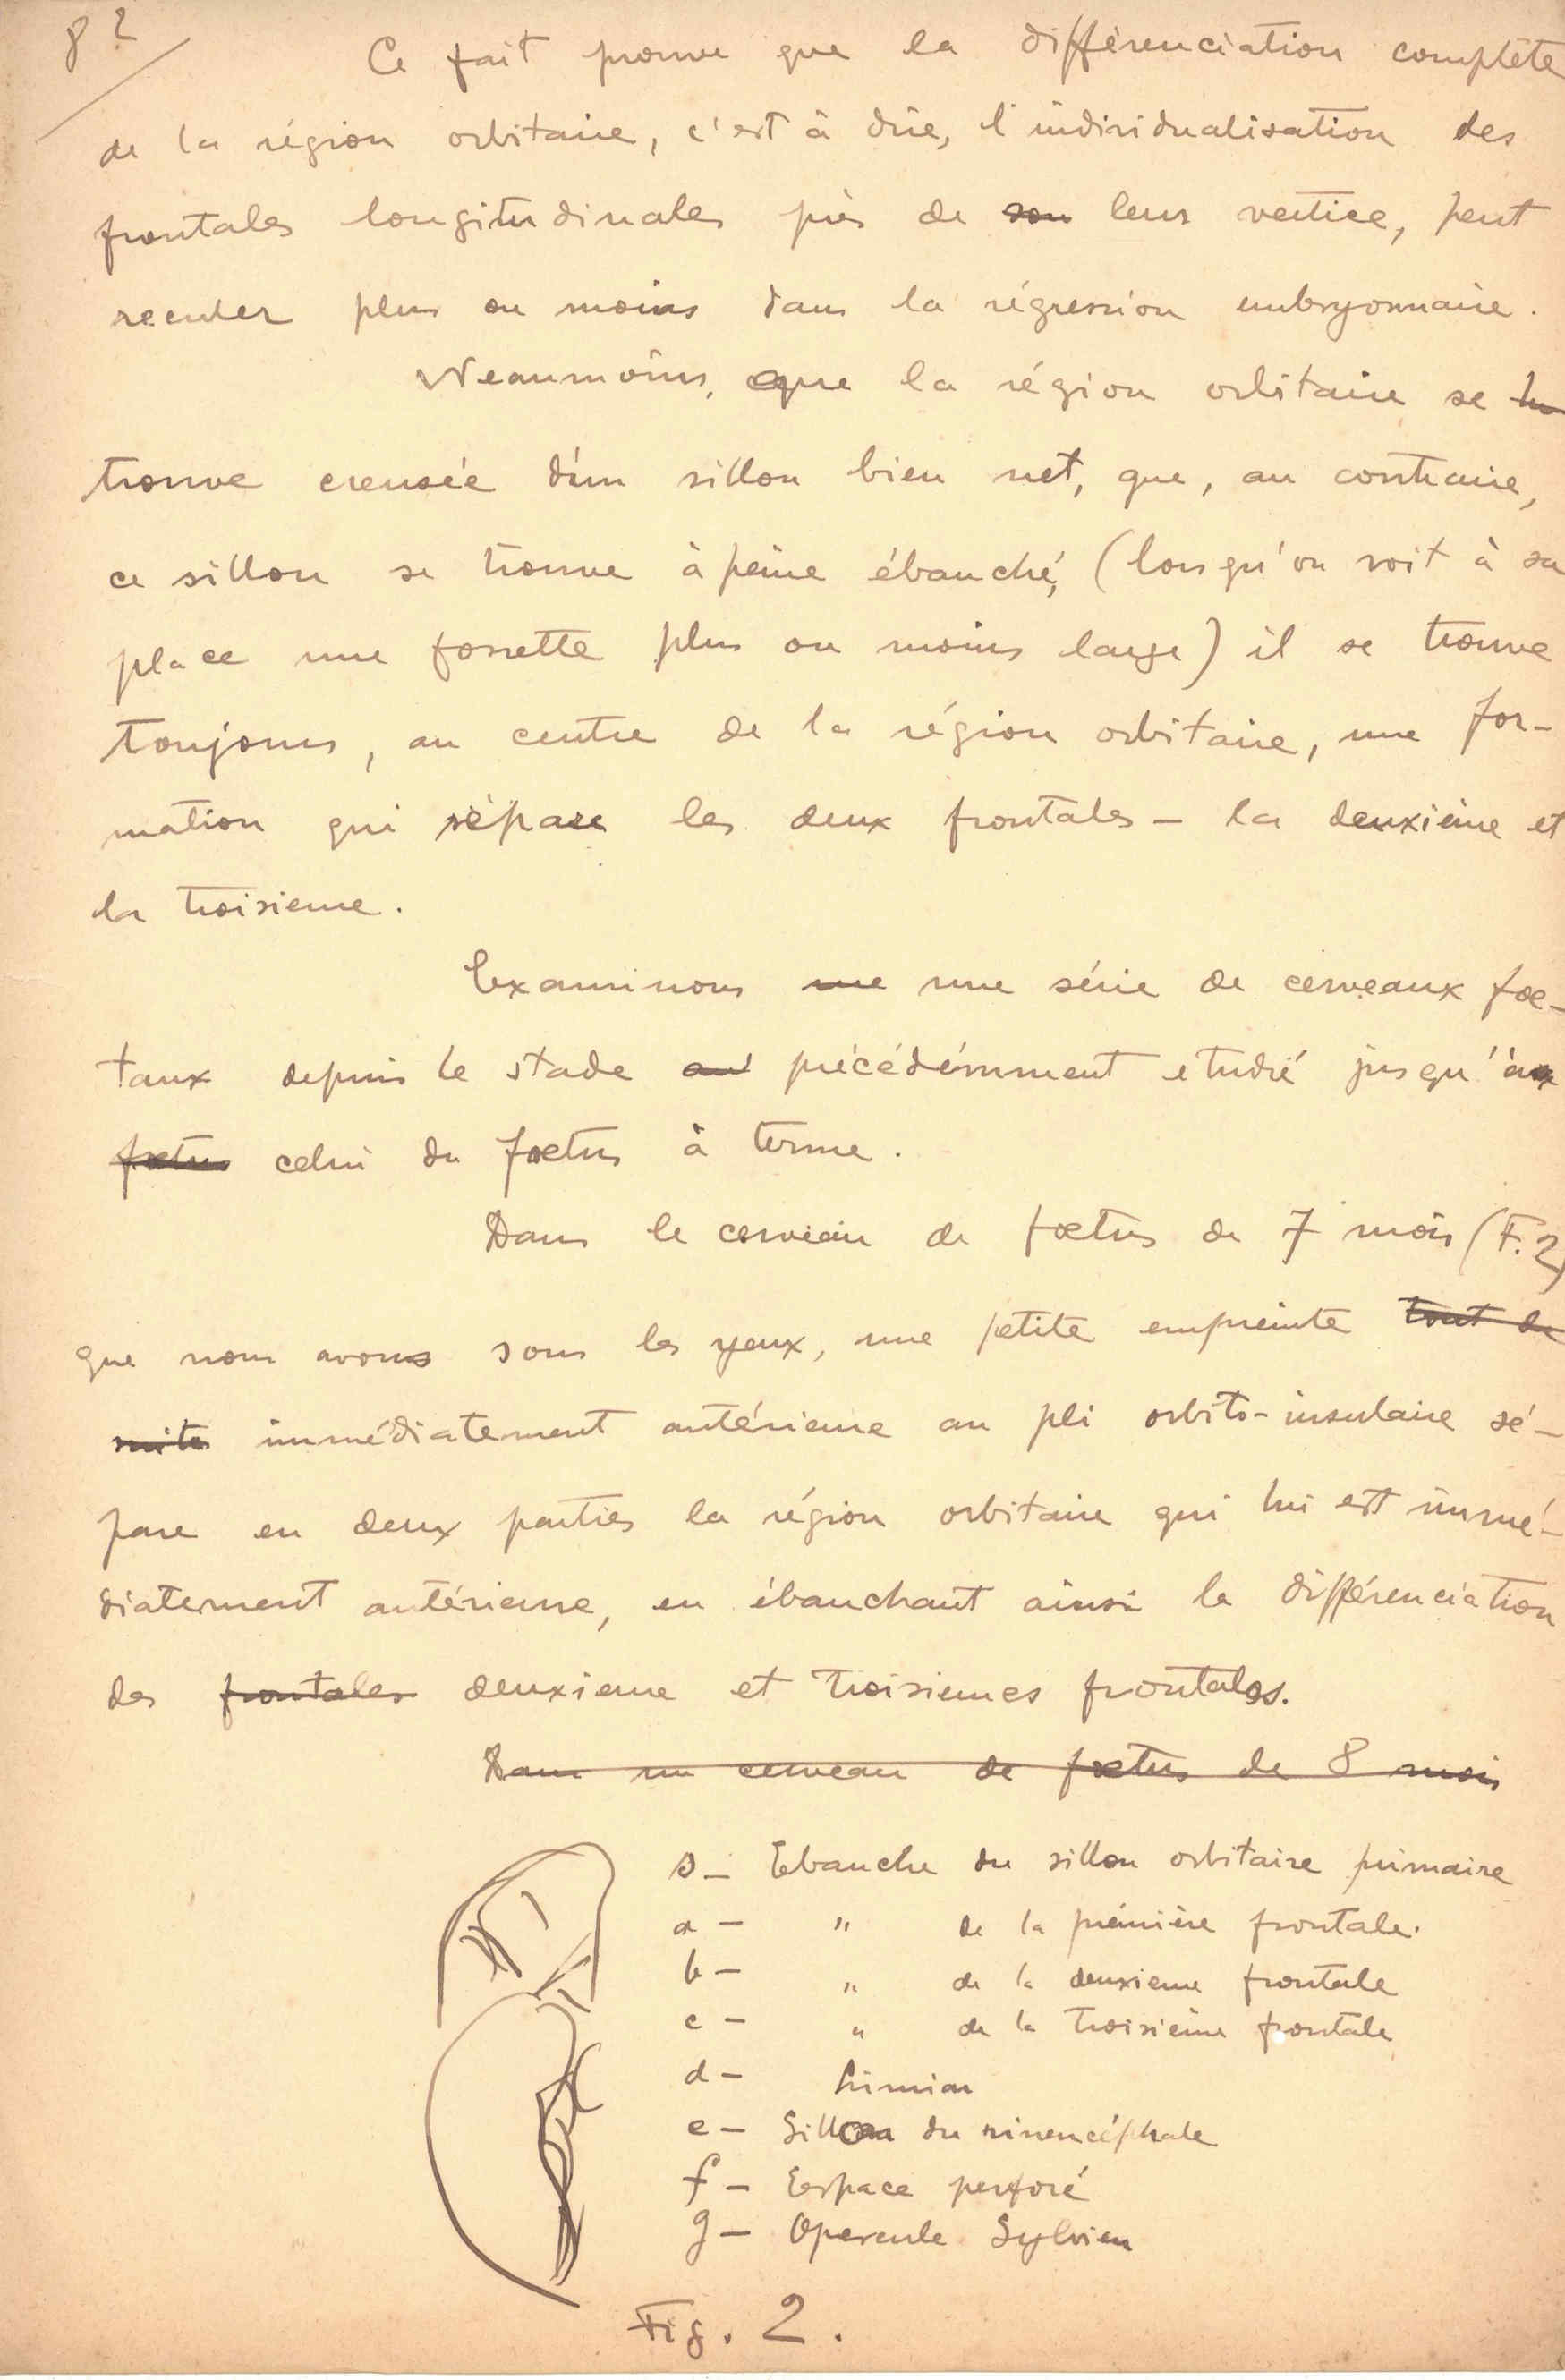 82
Ce fait prouve que la différenciation complète
de la région orbitaire, c'est à dire, l'individualisation des
frontales longitudinales près de son leur vertice, peut
reculer plus ou moins dans la régression embryonnaire.
Neaumoins, que la région orbitaire se
trouve creusée d'un sillon bien net, que, au contraire,
ce sillon se trouve à peine ébauché, (lorsqu'on voit à sa
place une fossette plus ou moins large) il se trouve
toujours, au centre de la région orbitaire, une for-
mation qui sépare les deux frontales - la deuxième et
la troisieme.
Examinons une une série de cerveaux foe-
taux depuis le stade au précédémment etudié jusqu'à
foetus celui du foetus à terme.
Dans le cerveau de foetus de 7 mois (F. 2)
que nous avons sous les yeux, une petite empreinte tout de
suite immédiatement antérieure au pli orbito-insulaire sé-
pare en deux parties la région orbitaire qui lui est immé-
diatement antérieure, en ébauchant ainsi la différenciation
des frontales deuxieme et troisiemes frontales.
Dans un cerveau de foetus de 8 mois
s - Ebauche du sillon orbitaire primaire
a - " de la prémière frontale.
b - " de la deuxieme frontale
c - " de la troisième frontale
d -
e - Sillon du rinencéphale
f - Espace perforé
g - Opercule Sylvien
Fig. 2.